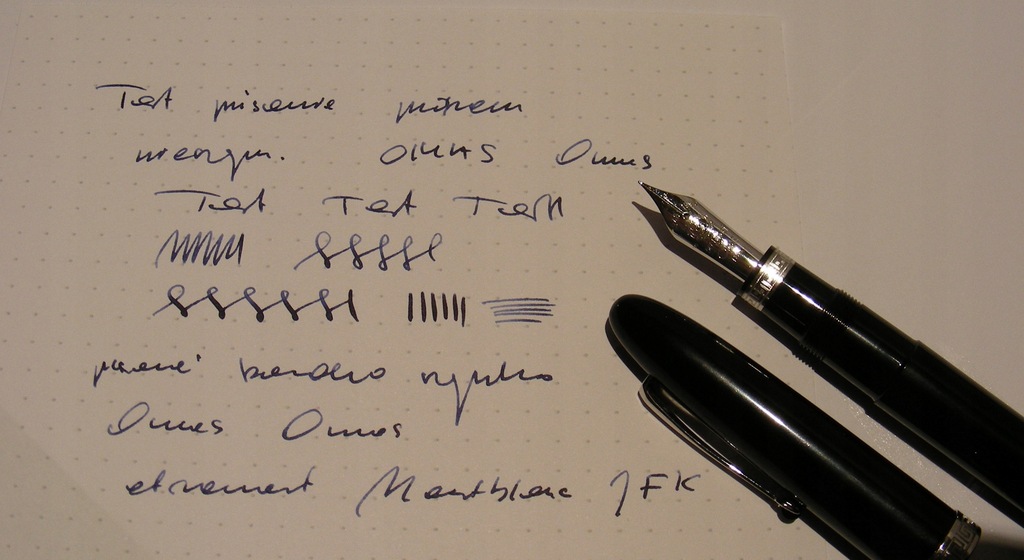 Test pisanie piórem
wiecznym. OMAS Omas
Test Test Test
pisanie bardzo szybko
Omas Omas
atrament Montblanc JFK